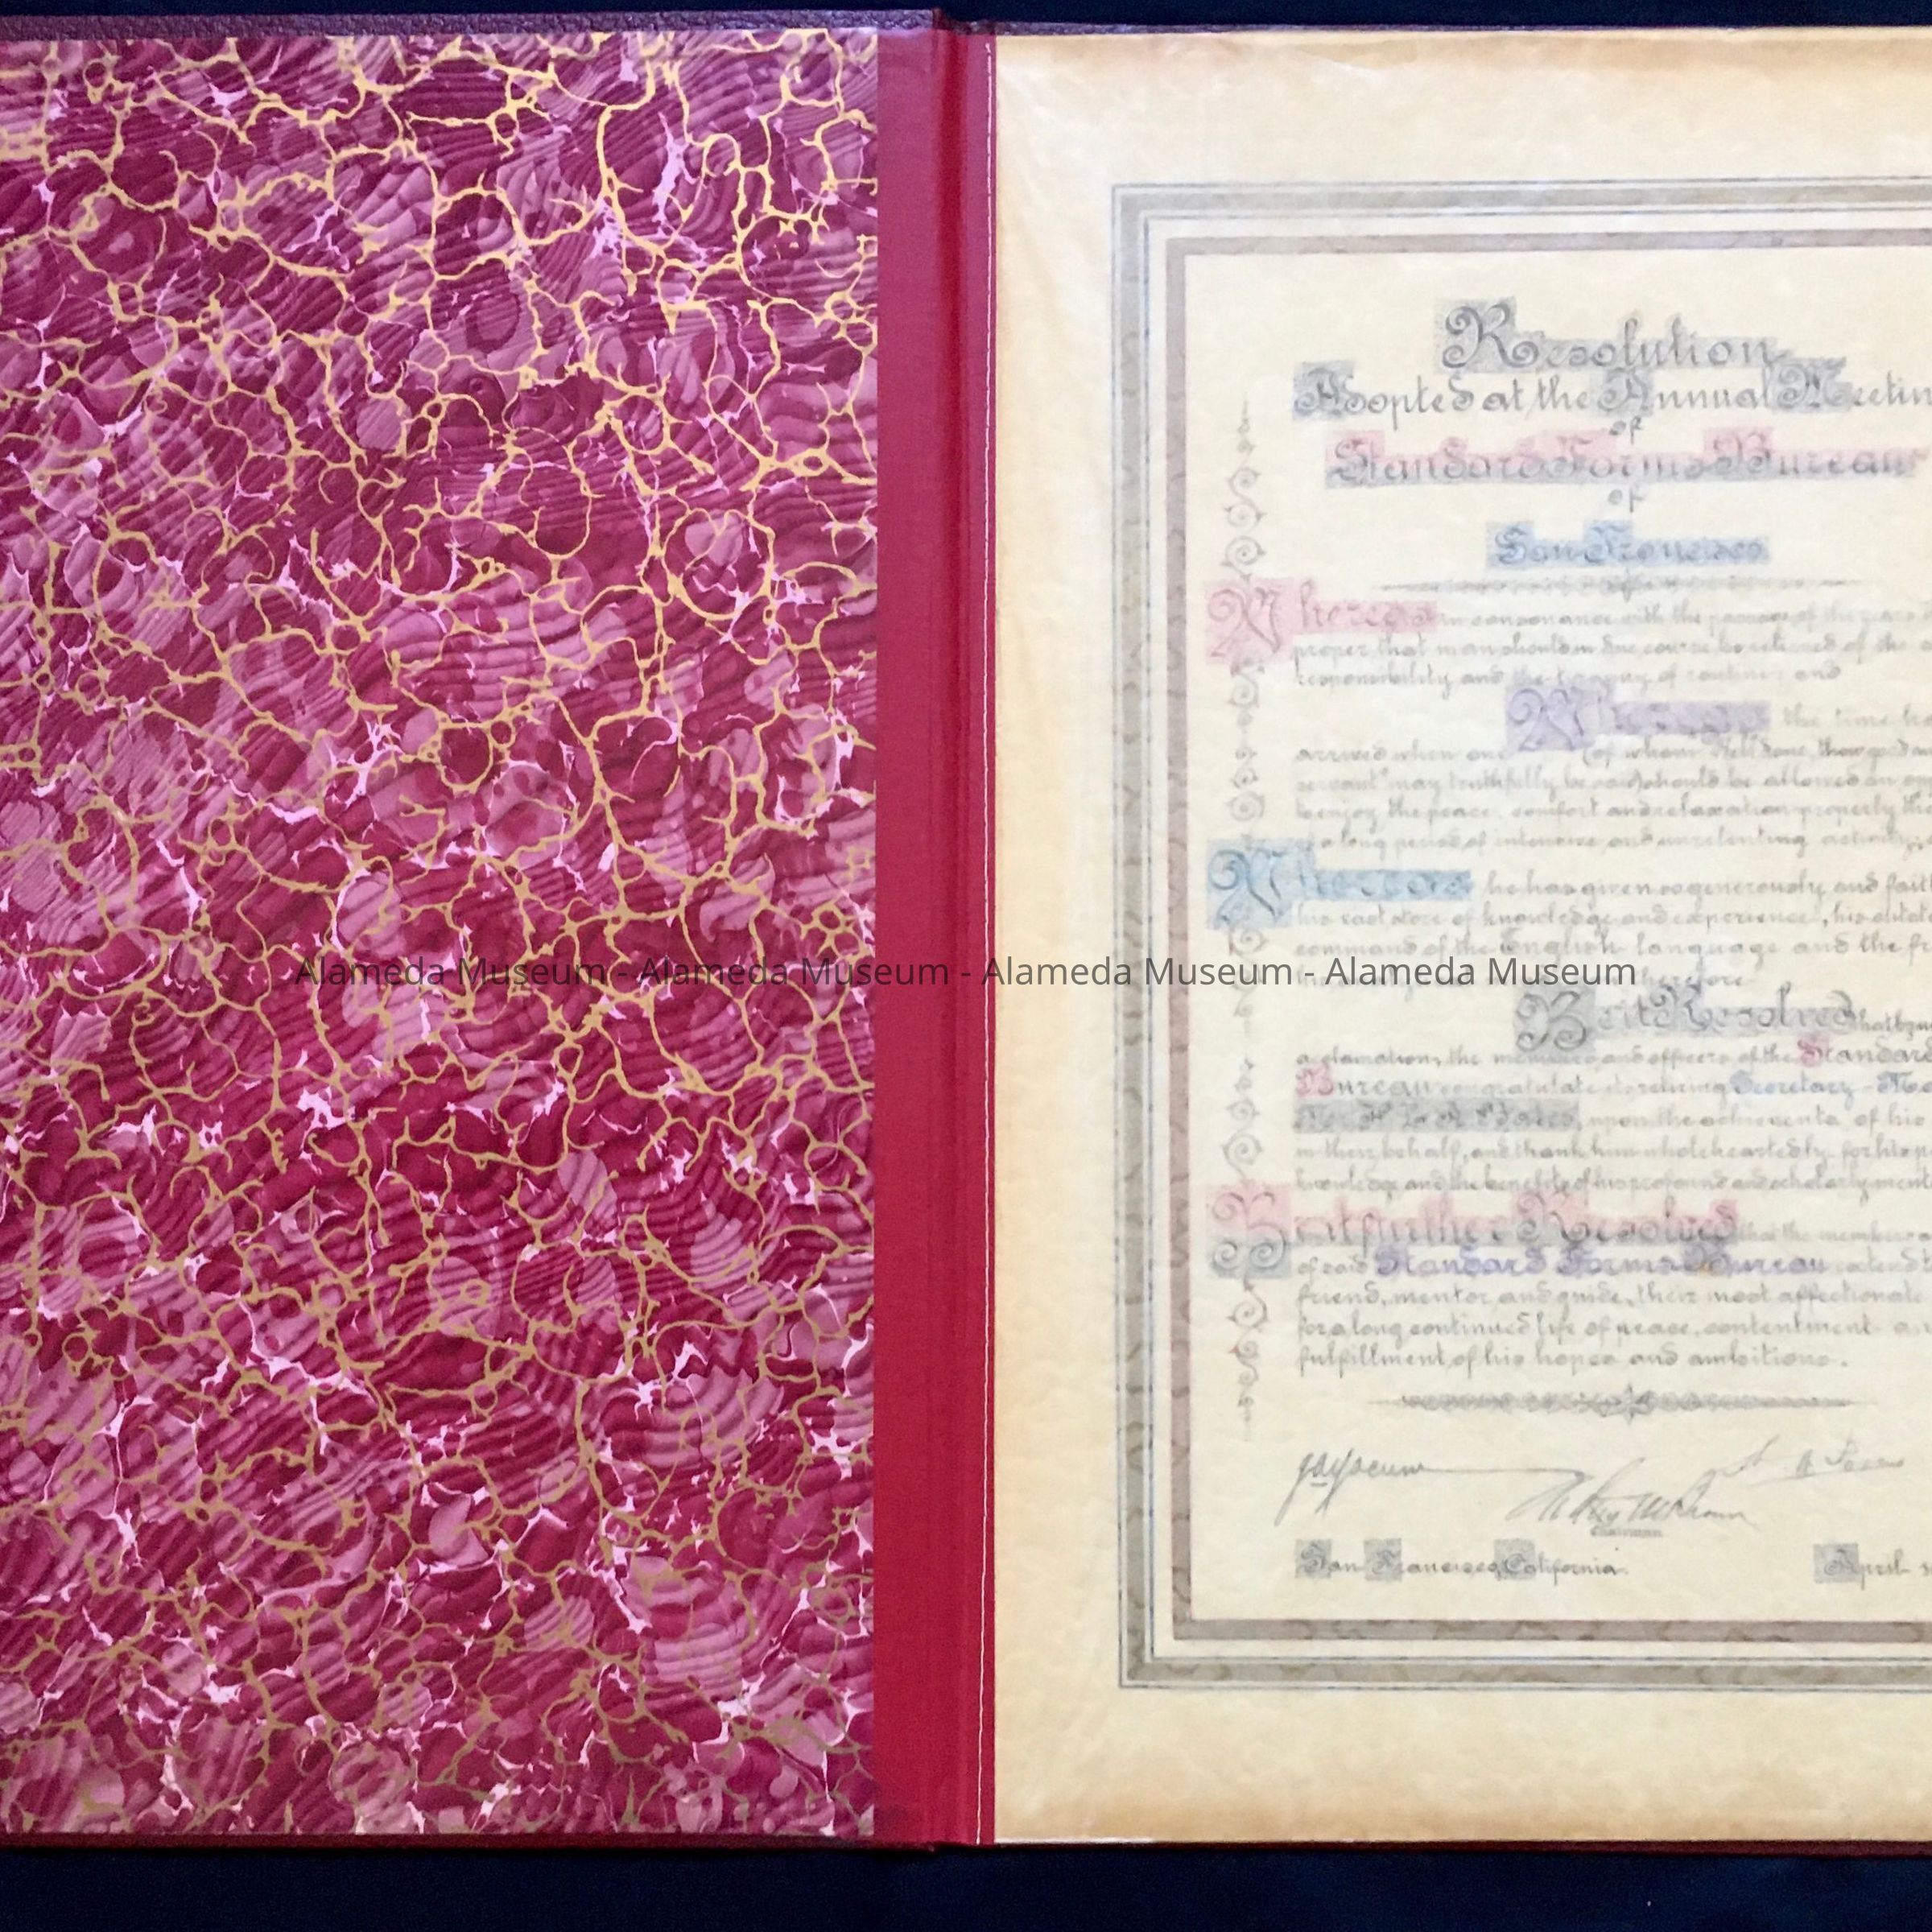 Resolution
Adopted at the Annual Meetin
of
Standard Forms Bureau
of
San Francisco
Whereas in consonance with the passage of the years
proper that man should in due course be relieved of the
responsibility and the of routine; and
Whereas the time
arrived when one (of whom "Well done, thou good an
servant" may truthfully be said) should be allowed an
to enjoy the peace, comfort and relaxation properly
a long period of intensive and unrelenting activity,
Whereas he has given so generously and fait
his vast store of knowledge and experience, his
command of the English language and the
therefore
Alameda Museum - Alameda Museum - Alameda Museum - Alameda Museum
Be it Resolved that by
acclamation, the members and officers of the Standard
Bureau congratulate its retiring Secretary-
upon the achievements of his
in their behalf, and thank him wholeheartedly for his
knowledge and the benefits of his profound and scholarly
Be it further Resolved that the members
of said Standard Forms Bureau extend
friend, mentor and guide, their most affectionate
for a long continued life of peace, contentment
fulfillment of his hopes and ambitions.
Chairman
San Francisco, California.
April